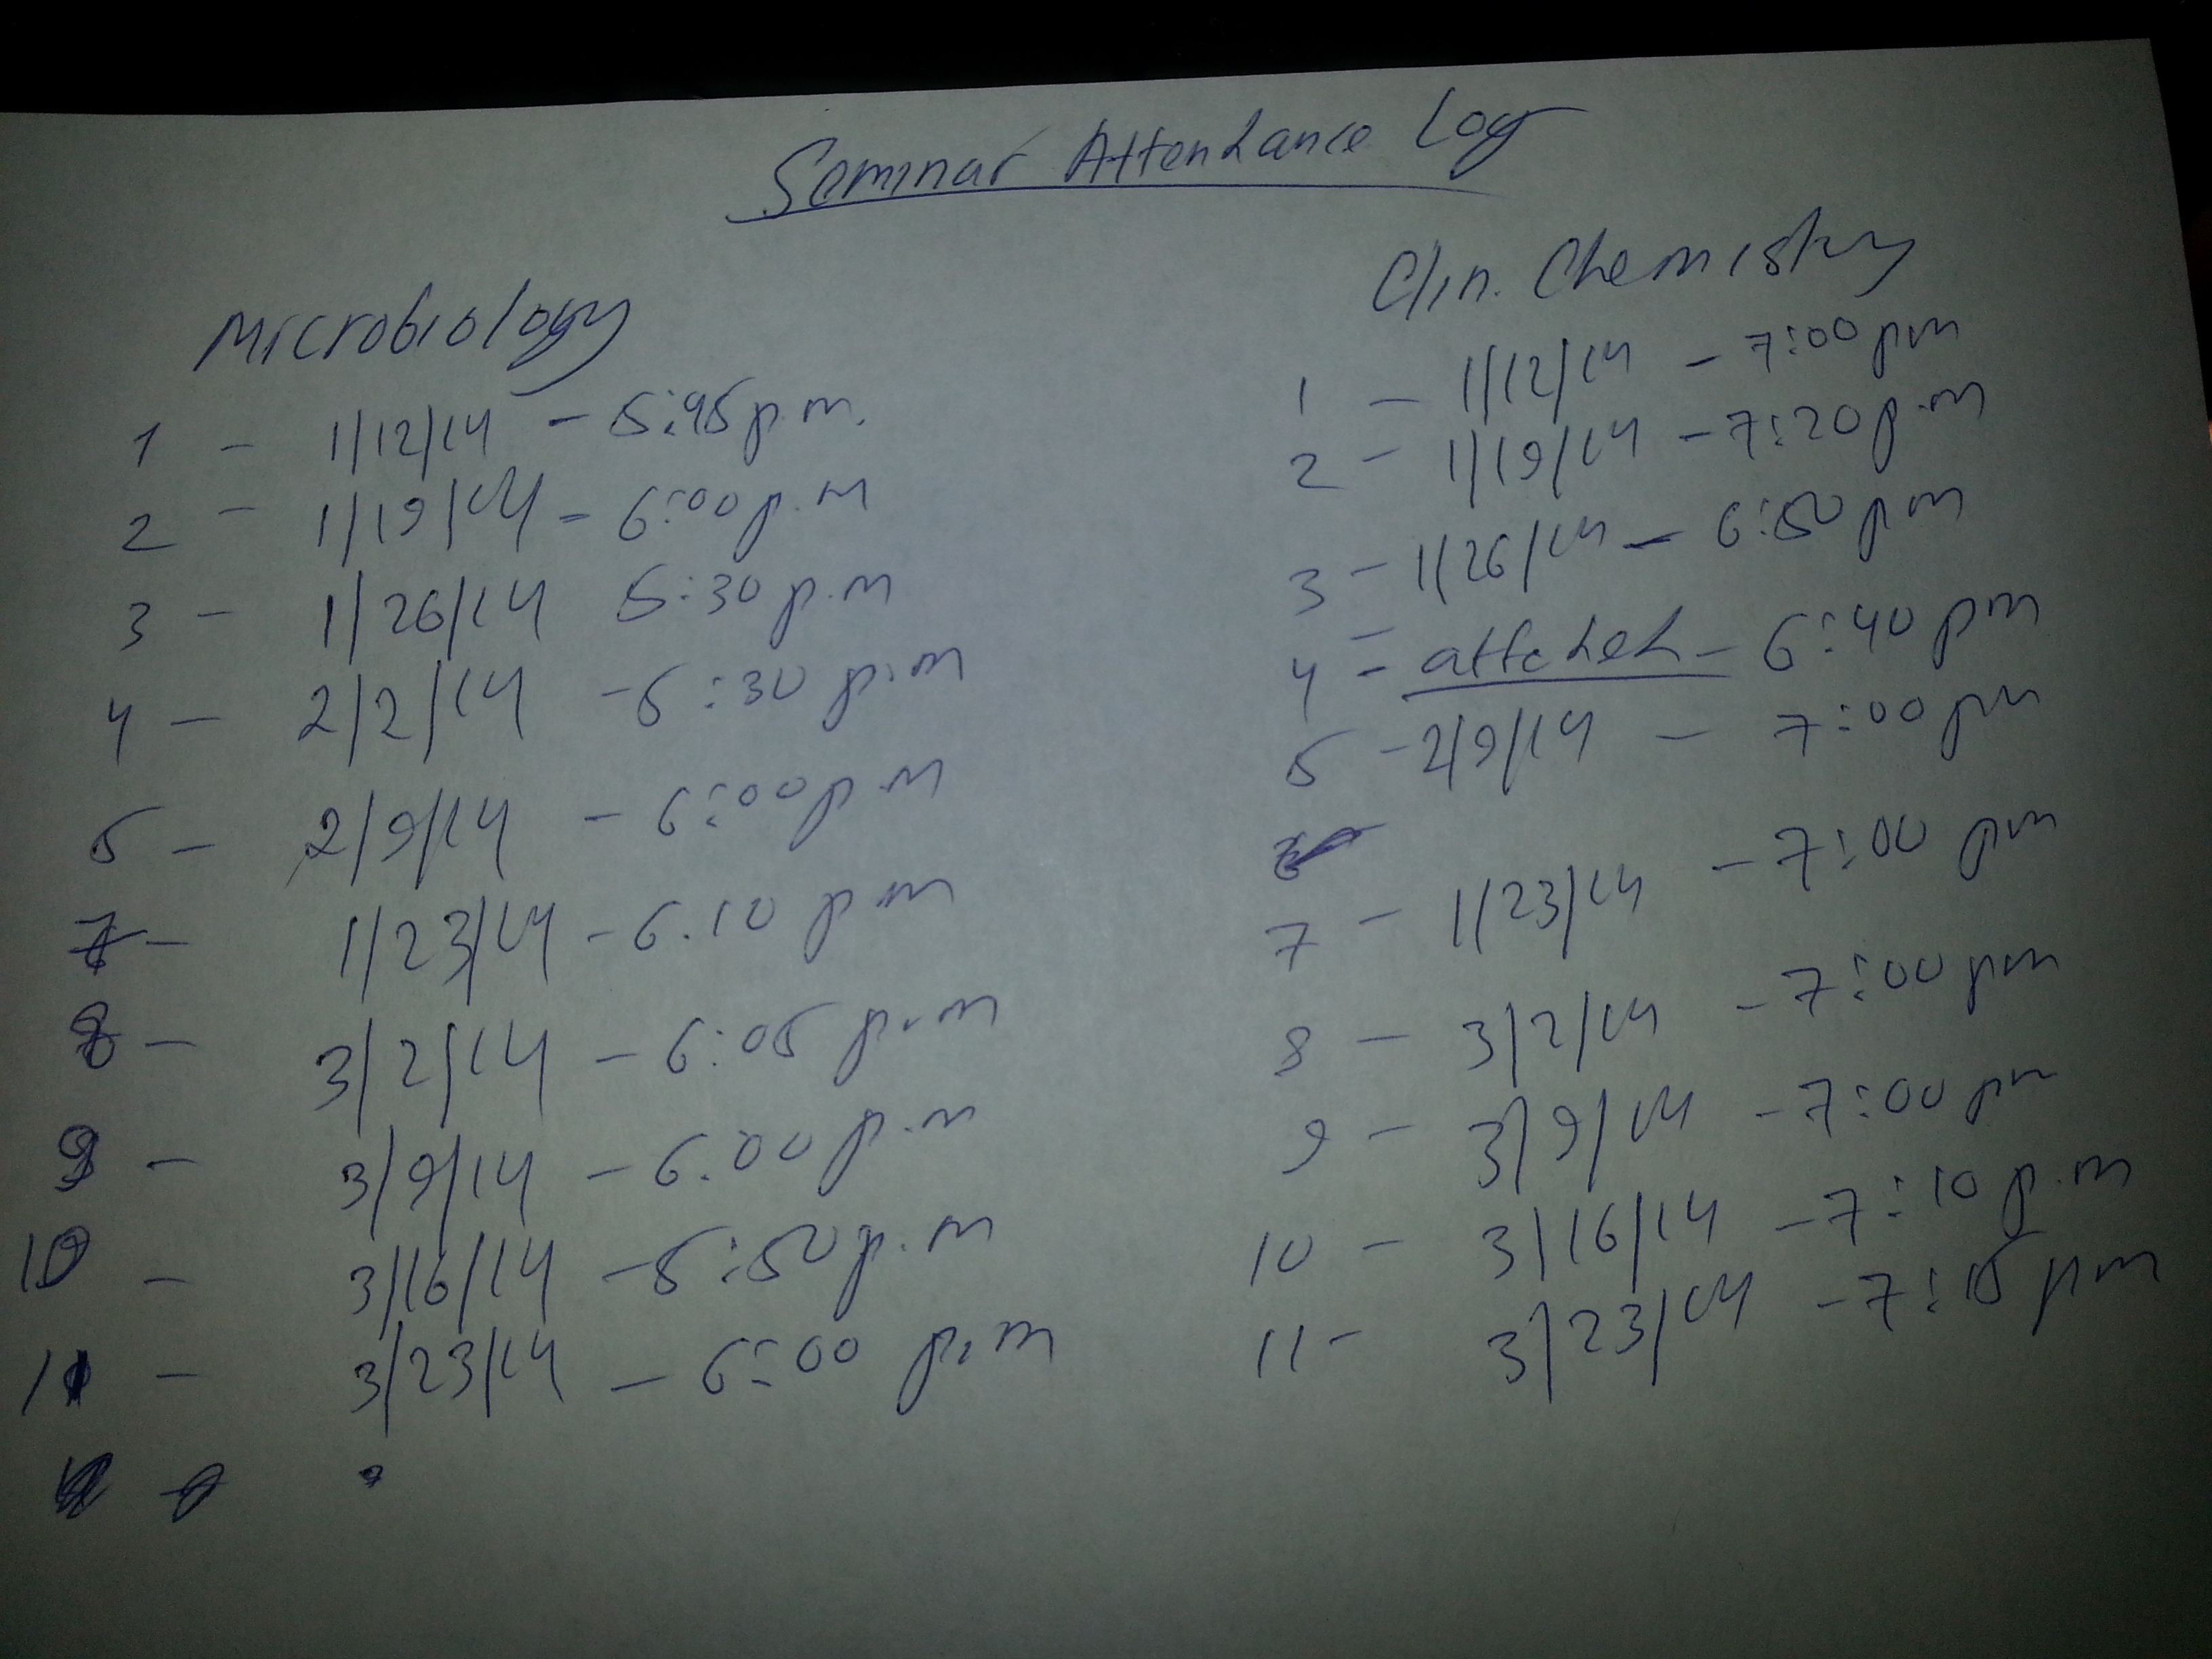 Seminar Attendance Log
Microbiology
1 - 1/12/14 - 5:45 p.m.
2 - 1/19/14 - 6:00 p.m
3 - 1/26/14 5:30 p.m
4 - 2/2/14 - 5:30 p.m
5 - 2/9/14 - 6:00 p.m
7 - 1/23/14 - 6.10 p m
8 - 3/2/14 - 6:05 p.m
9 - 3/9/14 - 6.00 p.m
10 - 3/16/14 - 5:50 p.m
11 - 3/23/14 - 6:00 p.m
Clin. Chemistry
1 - 1/12/14 - 7:00 pm
2 - 1/19/14 - 7:20 p.m
3 - 1/26/14 - 6:50 pm
4 - attched - 6:40 pm
5 - 2/9/14 - 7:00 pm
7 - 1/23/14 - 7:00 pm
8 - 3/2/14 - 7:00 pm
9 - 3/9/14 - 7:00 pm
10 - 3/16/14 - 7:10 p.m
11 - 3/23/14 - 7:15 pm